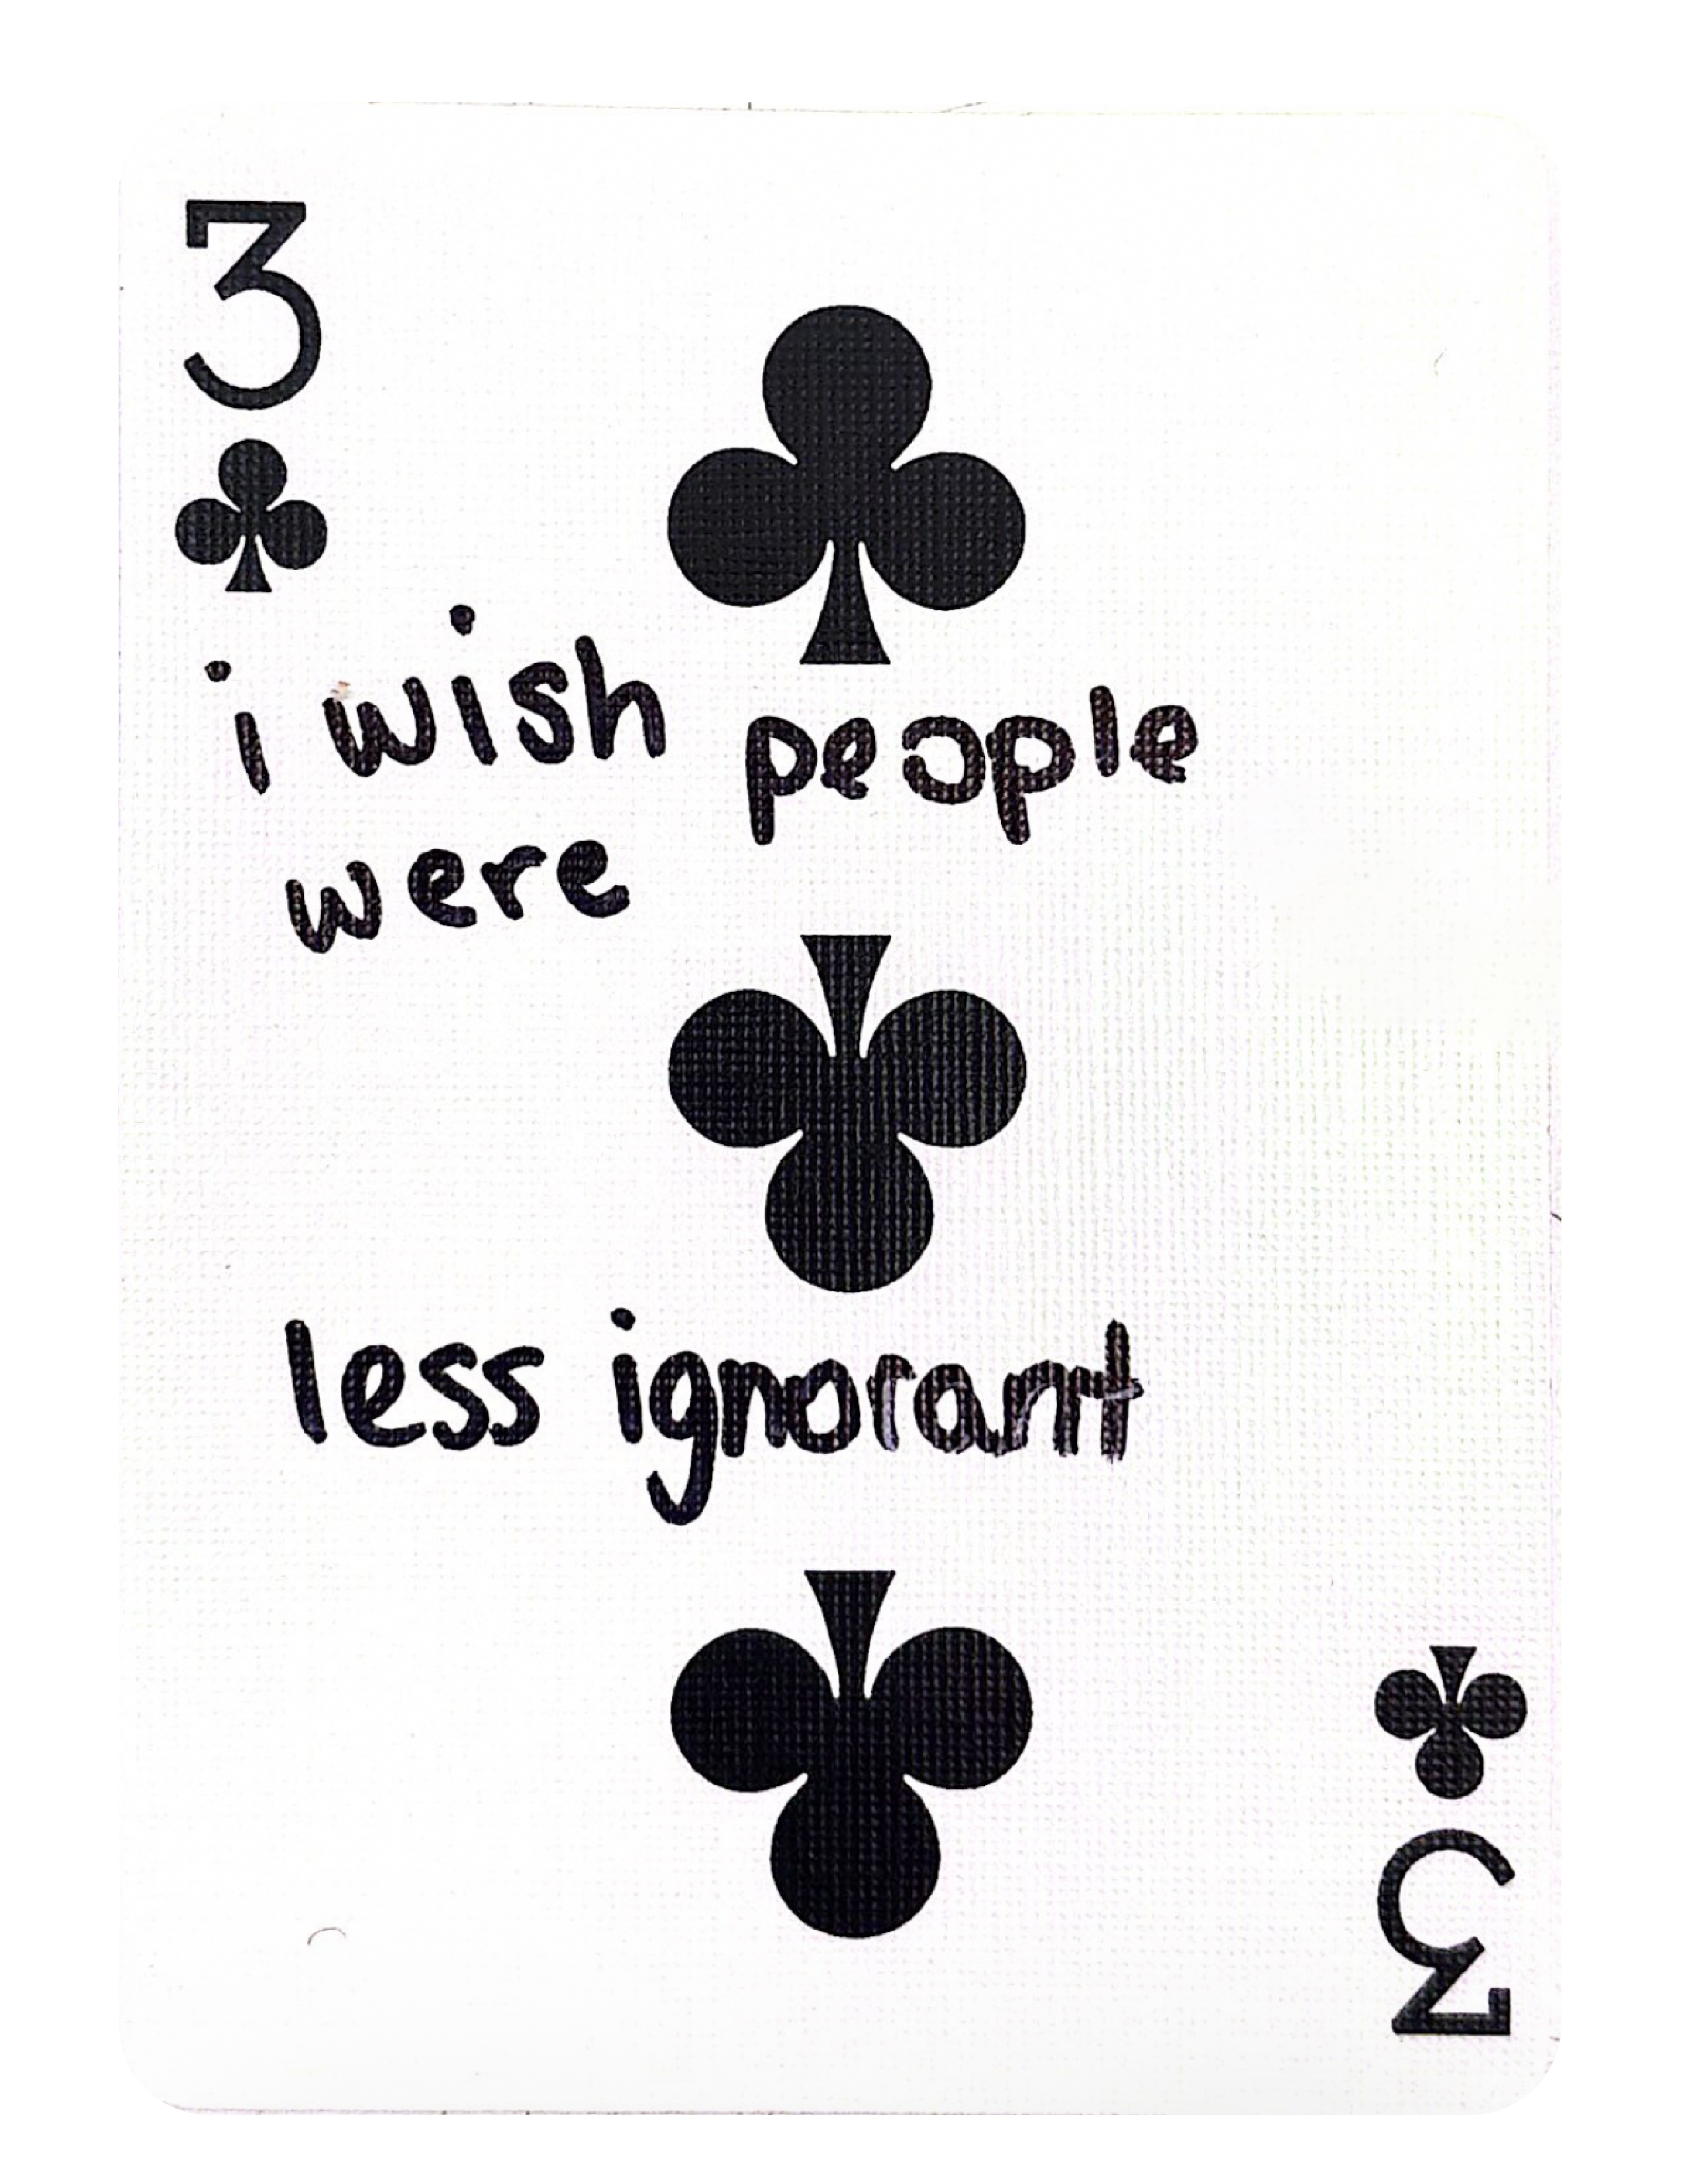 3
i wish people
were
less ignorant
3